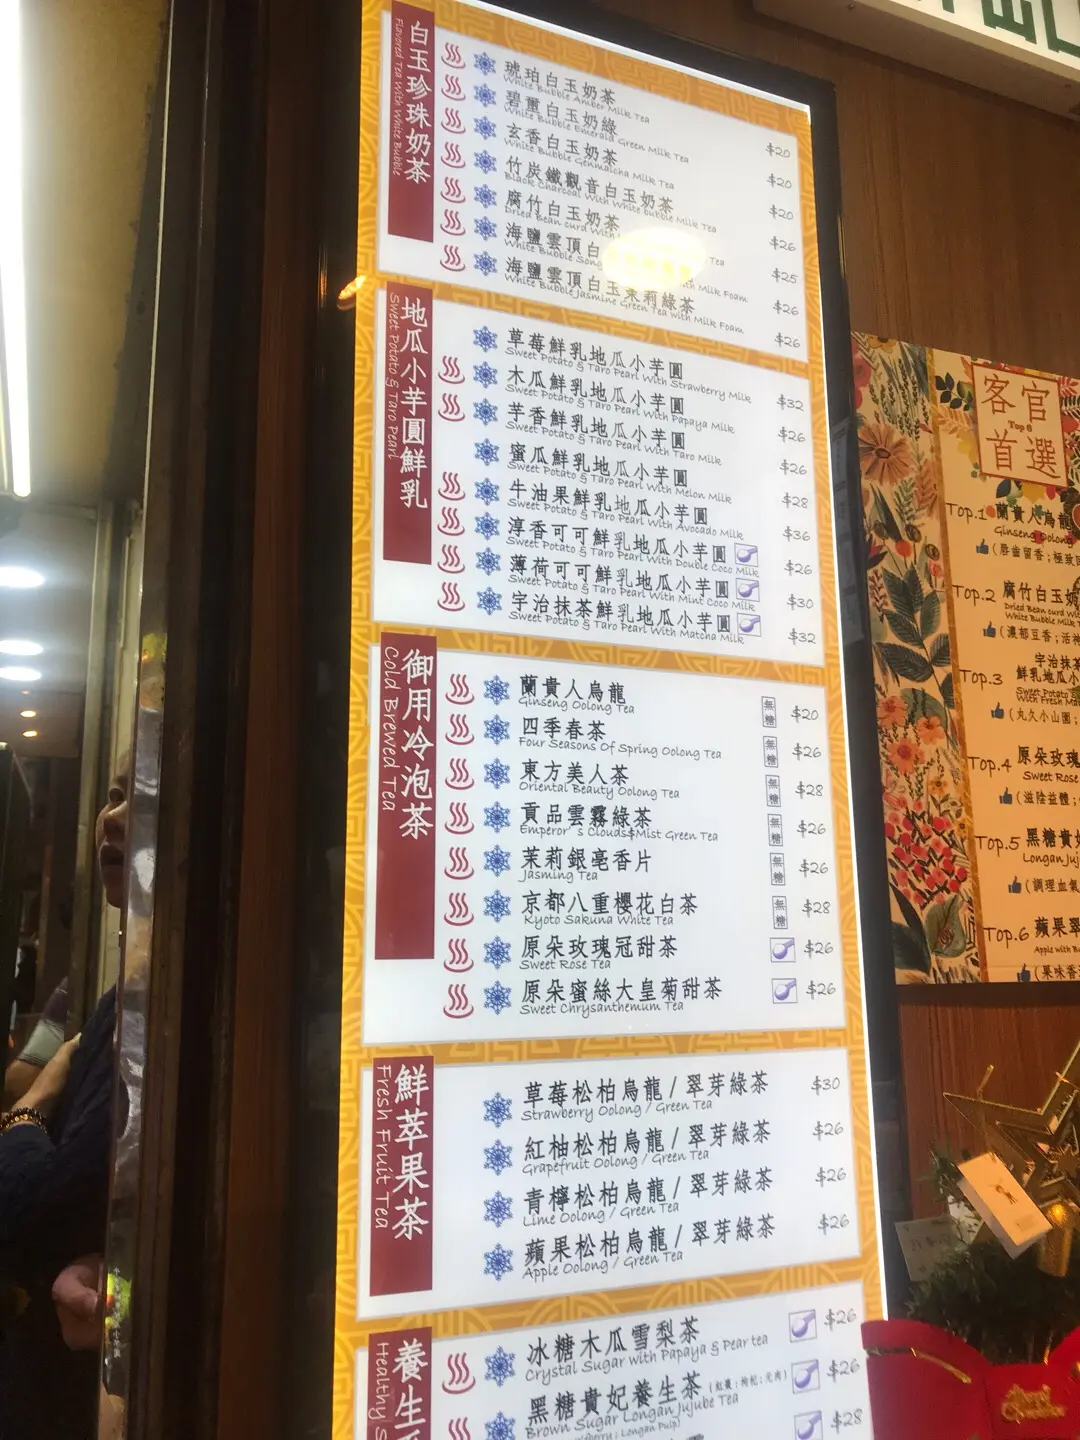 白玉珍珠奶茶
Flavored Tea With White Bubble
琥珀白玉奶茶
White Bubble Amber Milk Tea
$20
碧蕫白玉奶綠
White Bubble Emerald Green Milk Tea
$20
玄香白玉奶茶
White Bubble Genmaicha Milk Tea
$20
竹炭鐵觀音白玉奶茶
Black Charcoal With White bubble Milk Tea
$26
腐竹白玉奶茶
Dried Bean curd With Tea
$25
海鹽雲頂白
White Bubble Song th Milk Foam
$26
海鹽雲頂白玉茉莉綠茶
White Bubble Jasmine Green Tea with Milk Foam
$26
地瓜小芋圓鮮乳
Sweet Potato & Taro Pearl
草莓鮮乳地瓜小芋圓
Sweet Potato & Taro Pearl With Strawberry Milk
$32
木瓜鮮乳地瓜小芋圓
Sweet Potato & Taro Pearl With Papaya Milk
$26
芋香鮮乳地瓜小芋圓
Sweet Potato & Taro Pearl With Taro Milk
$26
蜜瓜鮮乳地瓜小芋圓
Sweet Potato & Taro Pearl With Melon Milk
$28
牛油果鮮乳地瓜小芋圓
Sweet Potato & Taro Pearl With Avocado Milk
$36
淳香可可鮮乳地瓜小芋圓
Sweet Potato & Taro Pearl With Double Coco Milk
$26
薄荷可可鮮乳地瓜小芋圓
Sweet Potato & Taro Pearl With Mint Coco Milk
$30
宇治抹茶鮮乳地瓜小芋圓
Sweet Potato & Taro Pearl With Matcha Milk
$32
御用冷泡茶
Cold Brewed Tea
蘭貴人烏龍 無糖 $20
Ginseng Oolong Tea
四季春茶 無糖 $26
Four Seasons Of Spring Oolong Tea
東方美人茶 無糖 $28
Oriental Beauty Oolong Tea
貢品雲霧綠茶 無糖 $26
Emperor's Clouds$Mist Green Tea
茉莉銀亳香片 無糖 $26
Jasming Tea
京都八重櫻花白茶 無糖 $28
Kyoto Sakuna White Tea
原朵玫瑰冠甜茶 $26
Sweet Rose Tea
原朵蜜絲大皇菊甜茶 $26
Sweet Chrysanthemum Tea
鮮萃果茶
Fresh Fruit Tea
草莓松柏烏龍/翠芽綠茶 $30
Strawberry Oolong / Green Tea
紅柚松柏烏龍/翠芽綠茶 $26
Grapefruit Oolong / Green Tea
青檸松柏烏龍/翠芽綠茶 $26
Lime Oolong / Green Tea
蘋果松柏烏龍/翠芽綠茶 $26
Apple Oolong / Green Tea
養生
Healthy S
冰糖木瓜雪梨茶 $26
Crystal Sugar with Papaya & Pear tea
黑糖貴妃養生茶 $26
Brown Sugar Longan Jujube Tea
; Longan Pulp)
$28
客官首選
Top 6
Top.1 蘭貴人烏龍
Ginseng Oolong
(唇齒留香;極致
Top.2 腐竹白玉奶
Dried Bean curd Wi
White Bubble Milk T
(濃郁豆香;活神
Top.3 宇治抹茶
鮮乳地瓜小
Sweet Potato
With Fresh Ma
(丸久小山園;
Top.4 原朵玫瑰
Sweet Rose
(滋陰益體;
Top.5 黑糖貴妃
Longan Juj
(調理血氣
Top.6 蘋果翠
Apple with B
(果味香